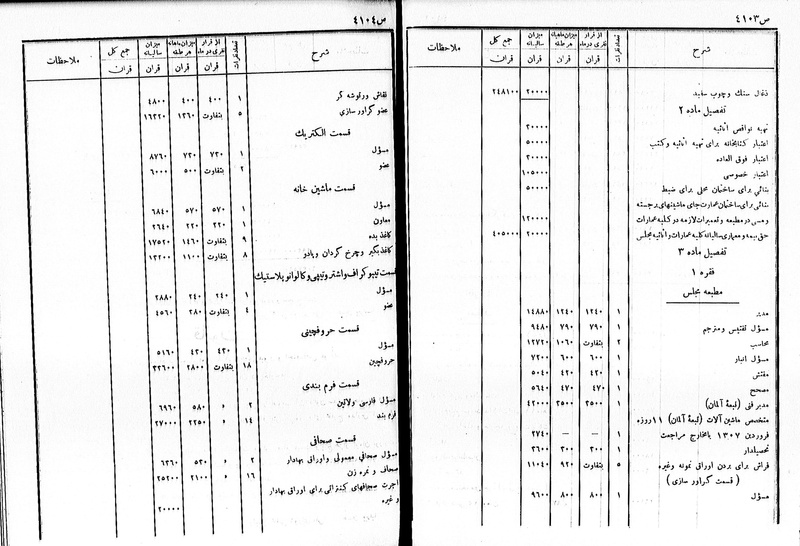 ص ۴۱۰۳
شرح | تعداد نفرات | از قرار نفری در ماه | میزان ماهیانه هر طبقه | میزان سالیانه | جمع کل | ملاحظات
قران | قران | قران | قران
ذغال سنك و چوب سفید ۲۰۰۰۰ ۲۴۸۱۰۰
تفصیل ماده ۲
تهیه نواقص اثاثیه ۲۰۰۰۰
اعتبار کتابخانه برای تهیه اثاثیه و کتب ۵۰۰۰۰
اعتبار فوق العاده ۲۰۰۰۰
اعتبار خصوصی ۱۰۵۰۰۰
بنائی برای ساختمان محلی برای ضبط ۵۰۰۰۰
بنائی برای ساختمان عمارت جای ماشینهای برجسته
و مسی در مطبعه و تعمیرات لازمه در کلیه عمارات ۱۲۰۰۰۰
حق بیمه و معماری سالیانه کلیه عمارات و اثاثیه مجلس ۲۰۰۰۰ ۴۰۵۰۰۰
تفصیل ماده ۳
فقره ۱
مطبعه مجلس
مدیر ۱ ۱۲۴۰ ۱۲۴۰ ۱۴۸۸۰
مسؤل تفتیش و مترجم ۱ ۷۹۰ ۷۹۰ ۹۴۸۰
محاسب ۲ بتفاوت ۱۰۶۰ ۱۲۷۲۰
مسؤل انبار ۱ ۶۰۰ ۶۰۰ ۷۲۰۰
مفتش ۱ ۴۲۰ ۴۲۰ ۵۰۴۰
مصحح ۱ ۴۷۰ ۴۷۰ ۵۶۴۰
مدیر فنی (تبعهٔ آلمان) ۱ ۳۵۰۰ ۳۵۰۰ ۴۲۰۰۰
متخصص ماشین آلات (تبعهٔ آلمان) ۱۱ روزه
فروردین ۱۳۰۷ بامخارج مراجعت ۱ — — ۲۷۴۰
تحصیلدار ۱ ۳۰۰ ۳۰۰ ۳۶۰۰
فراش برای بردن اوراق نمونه وغیره ۵ بتفاوت ۹۲۰ ۱۱۰۴۰
( قسمت گراور سازی )
مسؤل ۱ ۸۰۰ ۸۰۰ ۹۶۰۰
ص ۴۱۰۴
شرح | تعداد نفرات | از قرار نفری در ماه | میزان ماهانه هر طبقه | میزان سالیانه | جمع کل | ملاحظات
قران | قران | قران | قران
نقاش و رتوشه گر ۱ ۴۰۰ ۴۰۰ ۴۸۰۰
عضو گراور سازی ۵ بتفاوت ۱۳۶۰ ۱۶۳۲۰
قسمت الکتریك
مسؤل ۱ ۷۳۰ ۷۳۰ ۸۷۶۰
عضو ۲ بتفاوت ۵۰۰ ۶۰۰۰
قسمت ماشین خانه
مسؤل ۱ ۵۷۰ ۵۷۰ ۶۸۴۰
معاون ۱ ۲۲۰ ۲۲۰ ۲۶۴۰
کاغذ بده ۹ بتفاوت ۱۴۶۰ ۱۷۵۲۰
کاغذبگیر و چرخ گردان و پادو ۸ بتفاوت ۱۱۰۰ ۱۳۲۰۰
قسمت تیپو کراف و اشتروتیپی و کالوانوپلاستیك
مسؤل ۱ ۲۴۰ ۲۴۰ ۲۸۸۰
عضو ۴ بتفاوت ۳۸۰ ۴۵۶۰
قسمت حروفچینی
مسؤل ۱ ۴۳۰ ۴۳۰ ۵۱۶۰
حروفچین ۱۸ بتفاوت ۲۸۰۰ ۳۳۶۰۰
قسمت فرم بندی
مسؤل فارسی و لاتین ۲ » ۵۸۰ ۶۹۶۰
فرم بند ۱۴ » ۲۲۵۰ ۲۷۰۰۰
قسمت صحافی
مسؤل صحافی معمولی و اوراق بهادار ۲ » ۵۳۰ ۶۳۶۰
صحاف و نمره زن ۱۶ » ۲۱۰۰ ۲۵۲۰۰
اجرت صحافهای کنتراتی برای اوراق بهادار
و غیره ۲۰۰۰۰